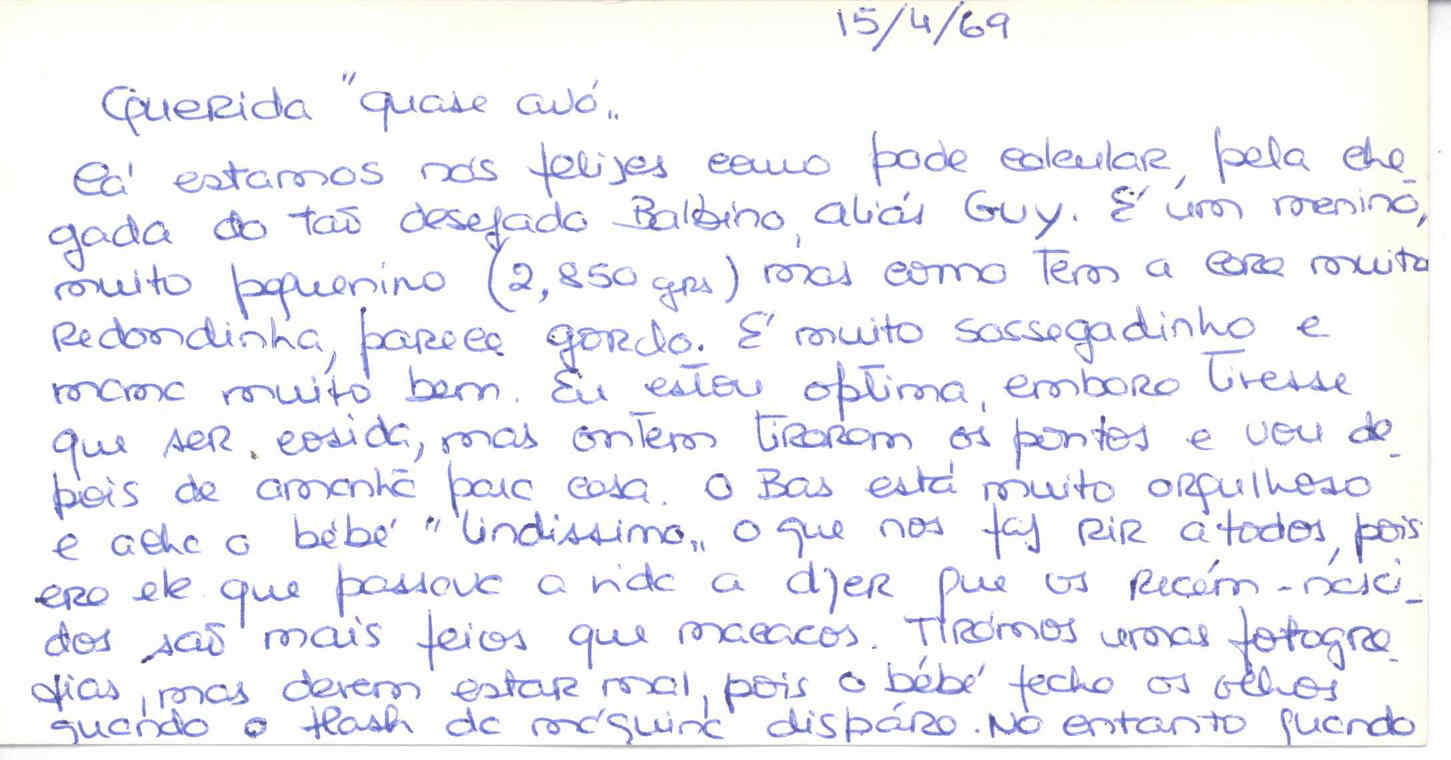 15/4/69
Querida "quase avó„
Cá estamos nós felizes como pode calcular, pela che_
gada do taõ desejado Balbino, aliás Guy. É um menino,
muito pequenino (2,850 grs) mas como tem a cara muito
redondinha, parece gordo. É muito sossegadinho e
mama muito bem. Eu estou optima, embora tivesse
que ser cosida, mas ontem tiraram os pontos e vou de_
pois de amanhã para casa. O Bas está muito orgulhoso
e acha o bébé "lindissimo„ o que nos faz rir a todos, pois
era ele que passava a vida a dizer que os recém-nasci_
dos saõ mais feios que macacos. Tirámos umas fotogra_
fias, mas devem estar mal, pois o bébé fecha os olhos
quando o flash da máquina dispára. No entanto quando